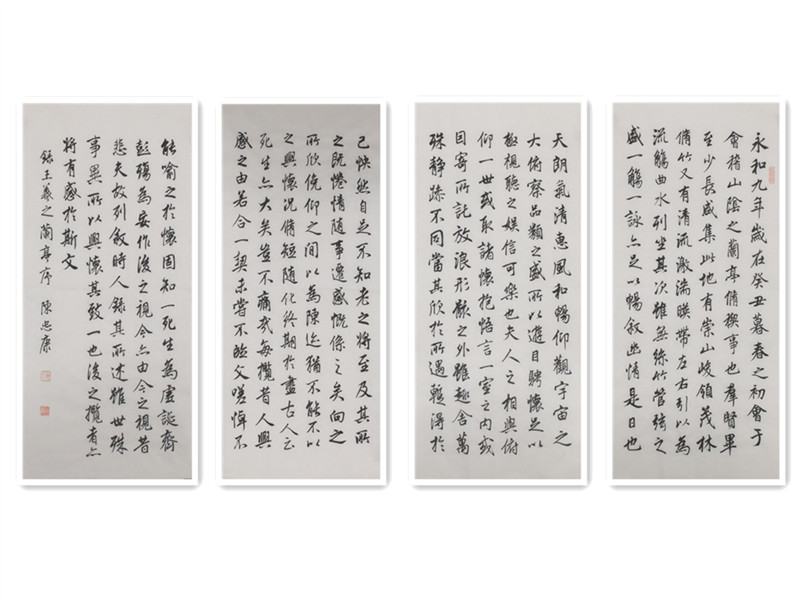 永和九年歲在癸丑暮春之初會于
會稽山陰之蘭亭脩稧事也羣賢畢
至少長咸集此地有崇山峻領茂林
脩竹又有清流激湍暎帶左右引以為
流觴曲水列坐其次雖無絲竹管弦之
盛一觴一詠亦足以暢敘幽情是日也
天朗氣清惠風和暢仰觀宇宙之
大俯察品類之盛所以遊目騁懷足以
極視聽之娛信可樂也夫人之相與俯
仰一世或取諸懷抱悟言一室之內或
因寄所託放浪形骸之外雖趣舍萬
殊靜躁不同當其欣於所遇暫得於
己怏然自足不知老之將至及其所
之既惓情隨事遷感慨係之矣向之
所欣俛仰之間以為陳迹猶不能不以
之興懷況脩短隨化終期於盡古人云
死生亦大矣豈不痛哉每攬昔人興
感之由若合一契未嘗不臨文嗟悼不
能喻之於懷固知一死生為虛誕齊
彭殤為妄作後之視今亦由今之視昔
悲夫故列敘時人錄其所述雖世殊
事異所以興懷其致一也後之攬者亦
將有感於斯文
錄王羲之蘭亭序 陳忠康